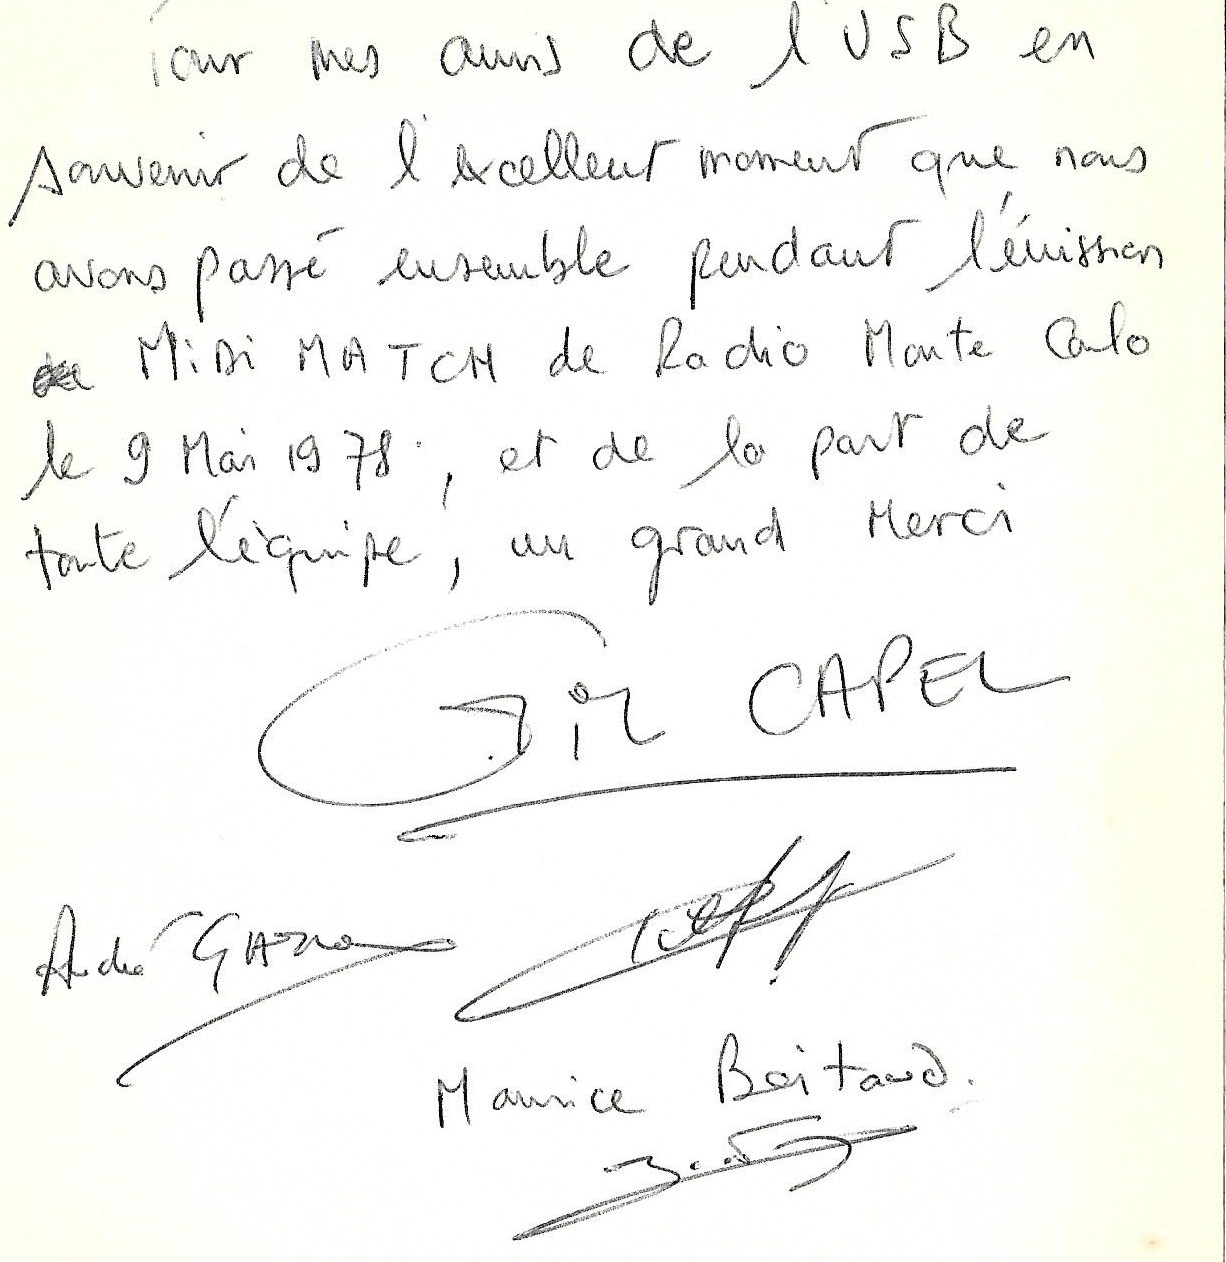 Pour mes amis de l'USB en
souvenir de l'excellent moment que nous
avons passé ensemble pendant l'émission
MiDi MATCH de Radio Monte Carlo
le 9 Mai 1978, et de la part de
toute l'équipe, un grand Merci
Gil CAPEL
André
Maurice Boitaud.